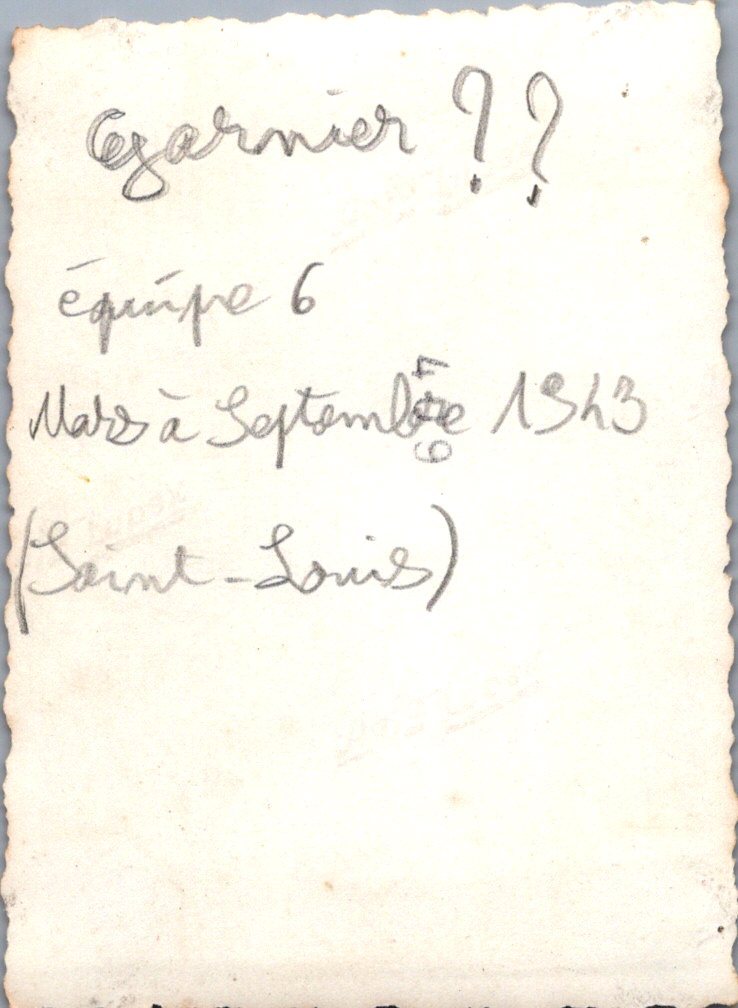 Garnier ??
équipe 6
Mars à Septembre 1943
(Saint-Louis)